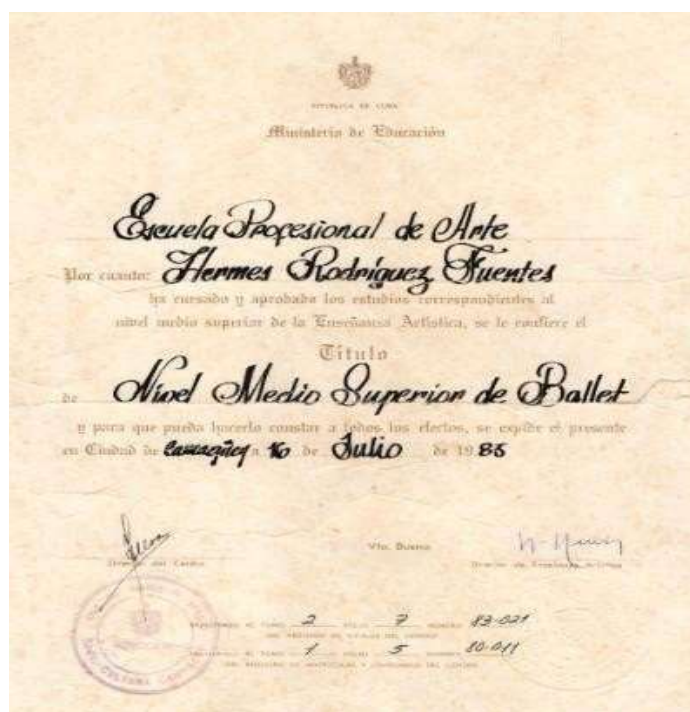 REPUBLICA DE CUBA
Ministerio de Educación
Escuela Profesional de Arte
Por cuanto: Hermes Rodríguez Fuentes
ha cursado y aprobado los estudios correspondientes al
nivel medio superior de la Enseñanza Artística, se le confiere el
Título
de Nivel Medio Superior de Ballet
y para que pueda hacerlo constar a todos los efectos, se expide el presente
en Ciudad de Camagüey a 16 de Julio de 1985
Vto. Bueno
Director del Centro Director de Enseñanza Artística
REGISTRADO AL TOMO 2 FOLIO 7 NUMERO 83-021
DEL REGISTRO DE TITULOS DEL CENTRO
1 FOLIO 5 NUMERO 80-011
DEL REGISTRO DE MATRICULAS Y DEL CENTRO